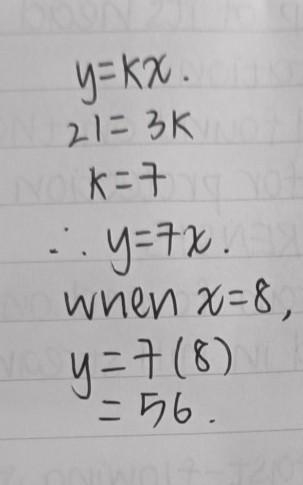 y=kx.
21=3k
k=7
∴ y=7x.
when x=8,
y=7(8)
=56.